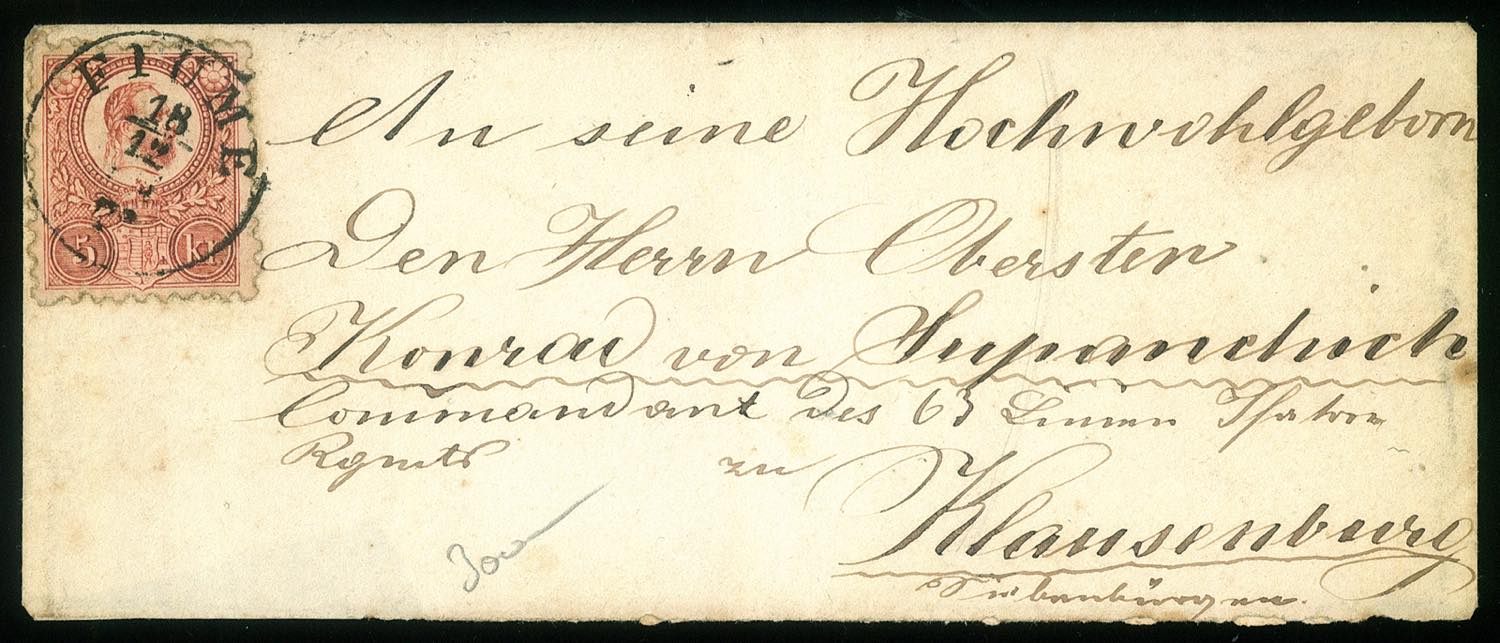 FIUME
18
12
5 kr
An seine Hochwohlgeborn
Den Herrn Obersten
Konrad von Supanchich
Commandant des 63 Linien
Rgmts zu
Klausenburg
Siebenbürgen.